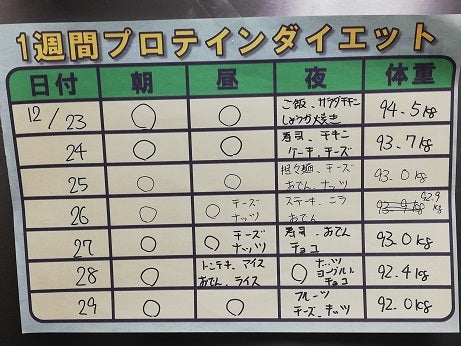 1週間プロテインダイエット
日付 朝 昼 夜 体重
12/23 ○ ○ ご飯、サラダチキン しょうが焼き 94.5kg
24 ○ ○ 寿司、チキン ケーキ、チーズ 93.7kg
25 ○ ○ 担々麺、チーズ おでん、ナッツ 93.0kg
26 ○ ○ チーズ ナッツ ステーキ、ニラ おでん 92.9kg
27 ○ ○ チーズ ナッツ 寿司、おでん チョコ 93.0kg
28 ○ トンテキ、アイス おでん、ライス ○ ナッツ ヨーグルト チョコ 92.4kg
29 ○ ○ フルーツ チーズ、ナッツ 92.0kg